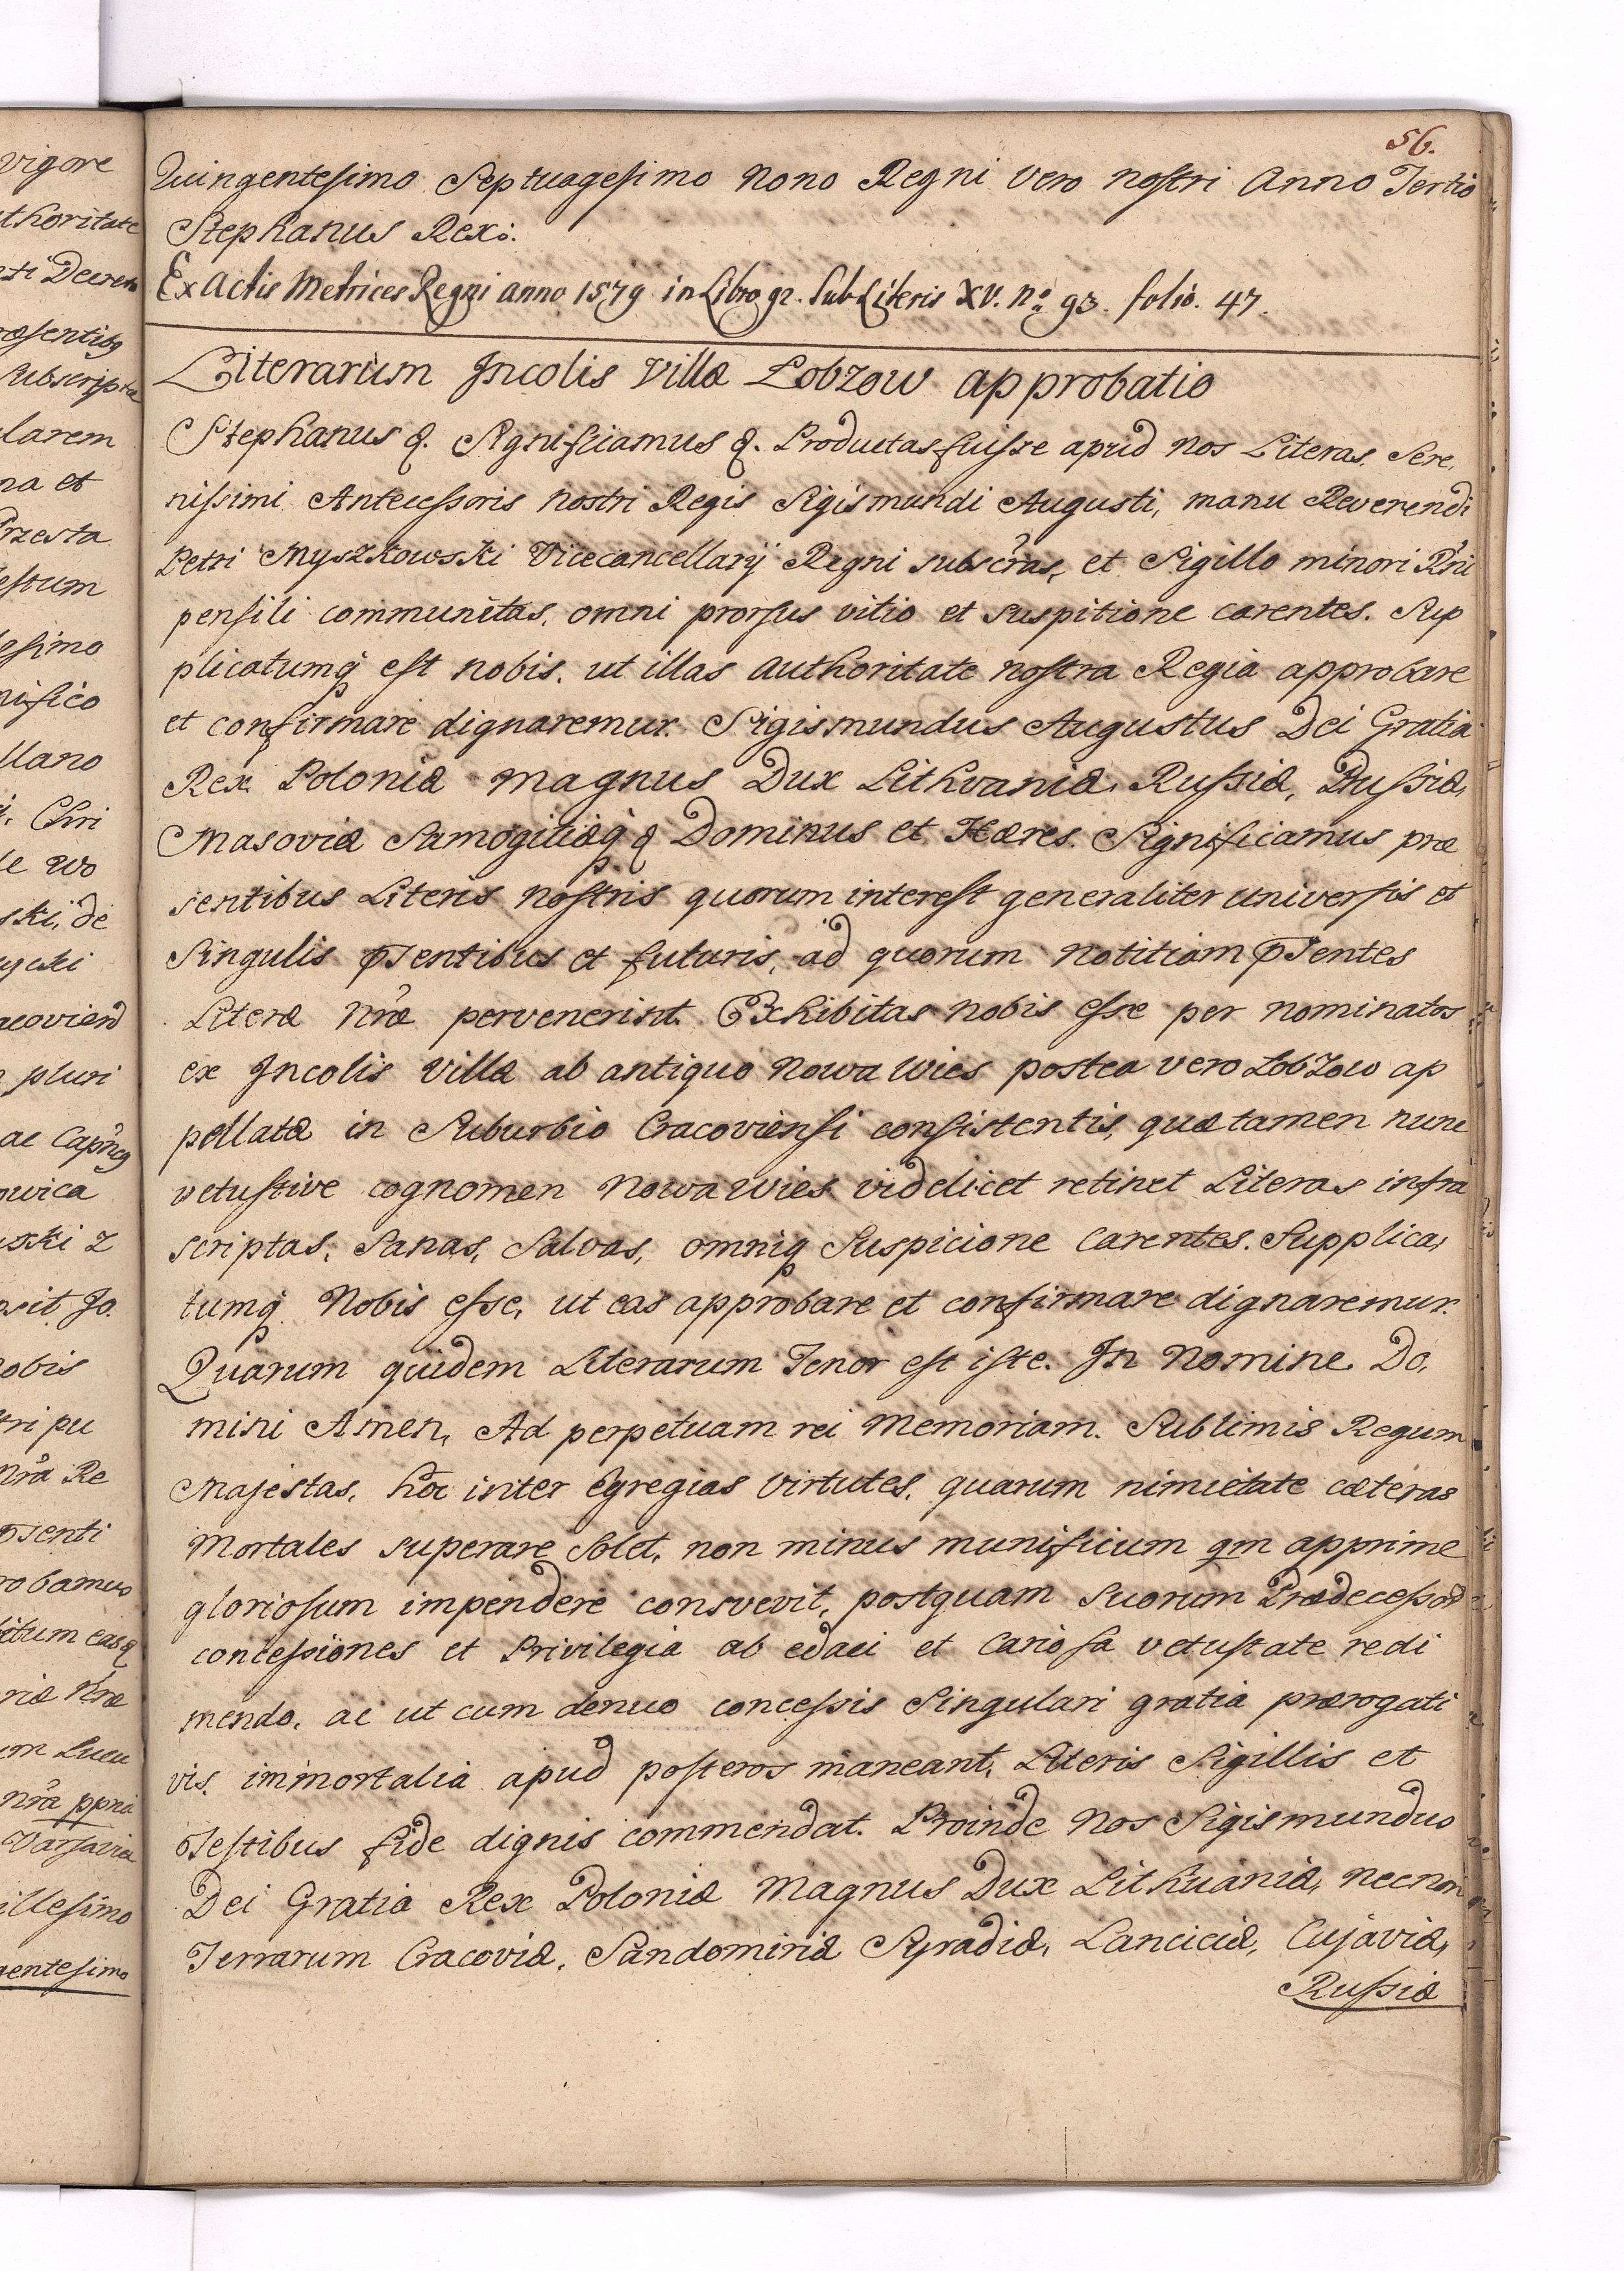 56.
Quingentesimo Septuagesimo Nono Regni Vero nostri Anno Tertio
Stephanus Rex.
Ex Actis Metrices Regni anno 1579 in Libro gr. Sub Literis XV. No 93. folio. 47.
Literarum Incolis Villæ Lobzow approbatio
Stephanus &. Significamus &. Productas fuisse apud Nos Literas Sere,
nissimi Antecessoris Nostri Regis Sigismundi Augusti, manu Reverendi
Petri Myszkowski Vicecancellarij Regni subscras, et Sigillo minori Rni
pensili communitas, omni prorsus vitio et suspitione carentes. Sup
plicatumq est nobis, ut illas Authoritate nostra Regia approbare
et confirmare dignaremur. Sigismundus Augustus Dei Gratia
Rex Poloniæ Magnus Dux Lithvaniæ, Russiæ, Prussiæ,
Masoviæ Samogitiæq & Dominus et Hæres. Significamus præ
sentibus Literis nostris quorum interest generaliter universis et
Singulis pntibus et futuris, ad quorum notitiam pntes
Literæ Nræ pervenerint. Exhibitas nobis esse per nominatos
ex Incolis Villæ ab antiquo Nowa Wies postea vero Lobzow ap
pellatæ in Suburbio Cracoviensi consistentis, quæ tamen nunc
vetustive cognomen Nowa Wies viddelicet retinet Literas infra
scriptas, Sanas, Salvas, omniq Suspicione Carentes. Supplica,
tumq Nobis esse, ut eas approbare et confirmare dignaremur.
Quarum quidem Literarum Tenor est iste. In Nomine Do,
mini Amen, Ad perpetuam rei Memoriam. Sublimis Regum
Majestas, hoc inter Egregias Virtutes, quarum nimietate cæteras
Mortales superare Solet, non minus munificium qm apprime
gloriosum impendere consvevit, postquam Suorum Prædecessor
concessiones et Privilegia ab edaci et Cariosa vetustate redi
mendo, ac ut cum denuo concessis Singulari gratia prærogati
vis, immortalia apud posteros maneant, Literis Sigillis et
Testibus fide dignis commendat. Proinde Nos Sigismundus
Dei Gratia Rex Poloniæ Magnus Dux Lithuaniæ, necnon
Terrarum Cracoviæ, Sandomiriæ Syradiæ, Lanciciæ, Cujaviæ,
Russiæ